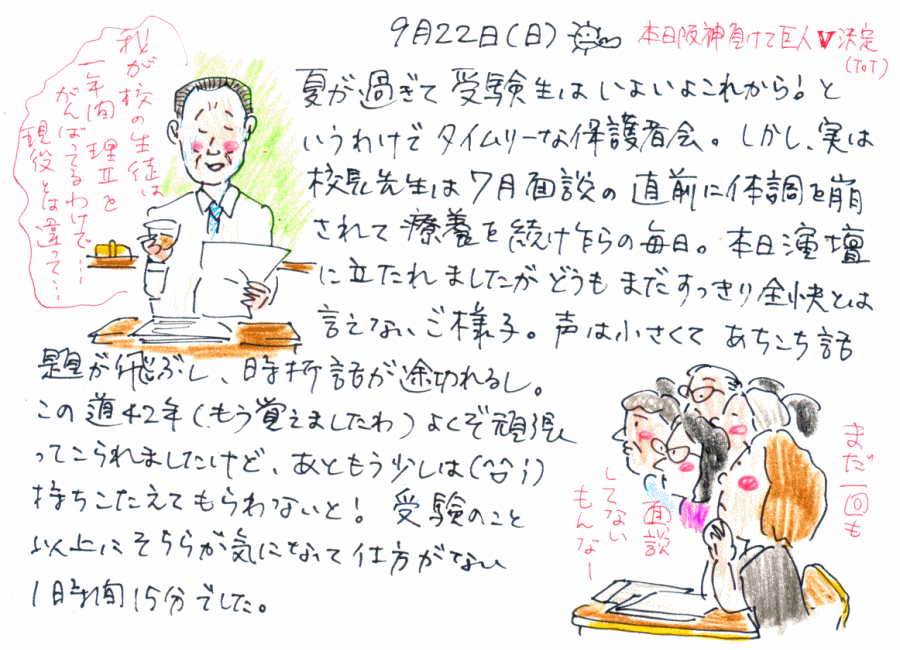 9月22日(日)
本日阪神負けて巨人V決定
(ToT)
我が校の生徒は
一年間 理Ⅲを
がんばってるわけで…
現役とは違って…
夏が過ぎて受験生はいよいよこれから!と
いうわけでタイムリーな保護者会。しかし、実は
校長先生は7月面談の直前に体調を崩
されて療養を続け乍らの毎日。本日演壇
に立たれましたがどうもまだすっきり全快とは
言えないご様子。声は小さくてあちこち話
題が飛ぶし、時折話が途切れるし。
この道42年(もう覚えましたわ)よくぞ頑張
ってこられましたけど、あともう少しは(笑)
持ちこたえてもらわないと! 受験のこと
以上にそちらが気になって仕方がない
1時間15分でした。
まだ一回も
面談
してない
もんなー